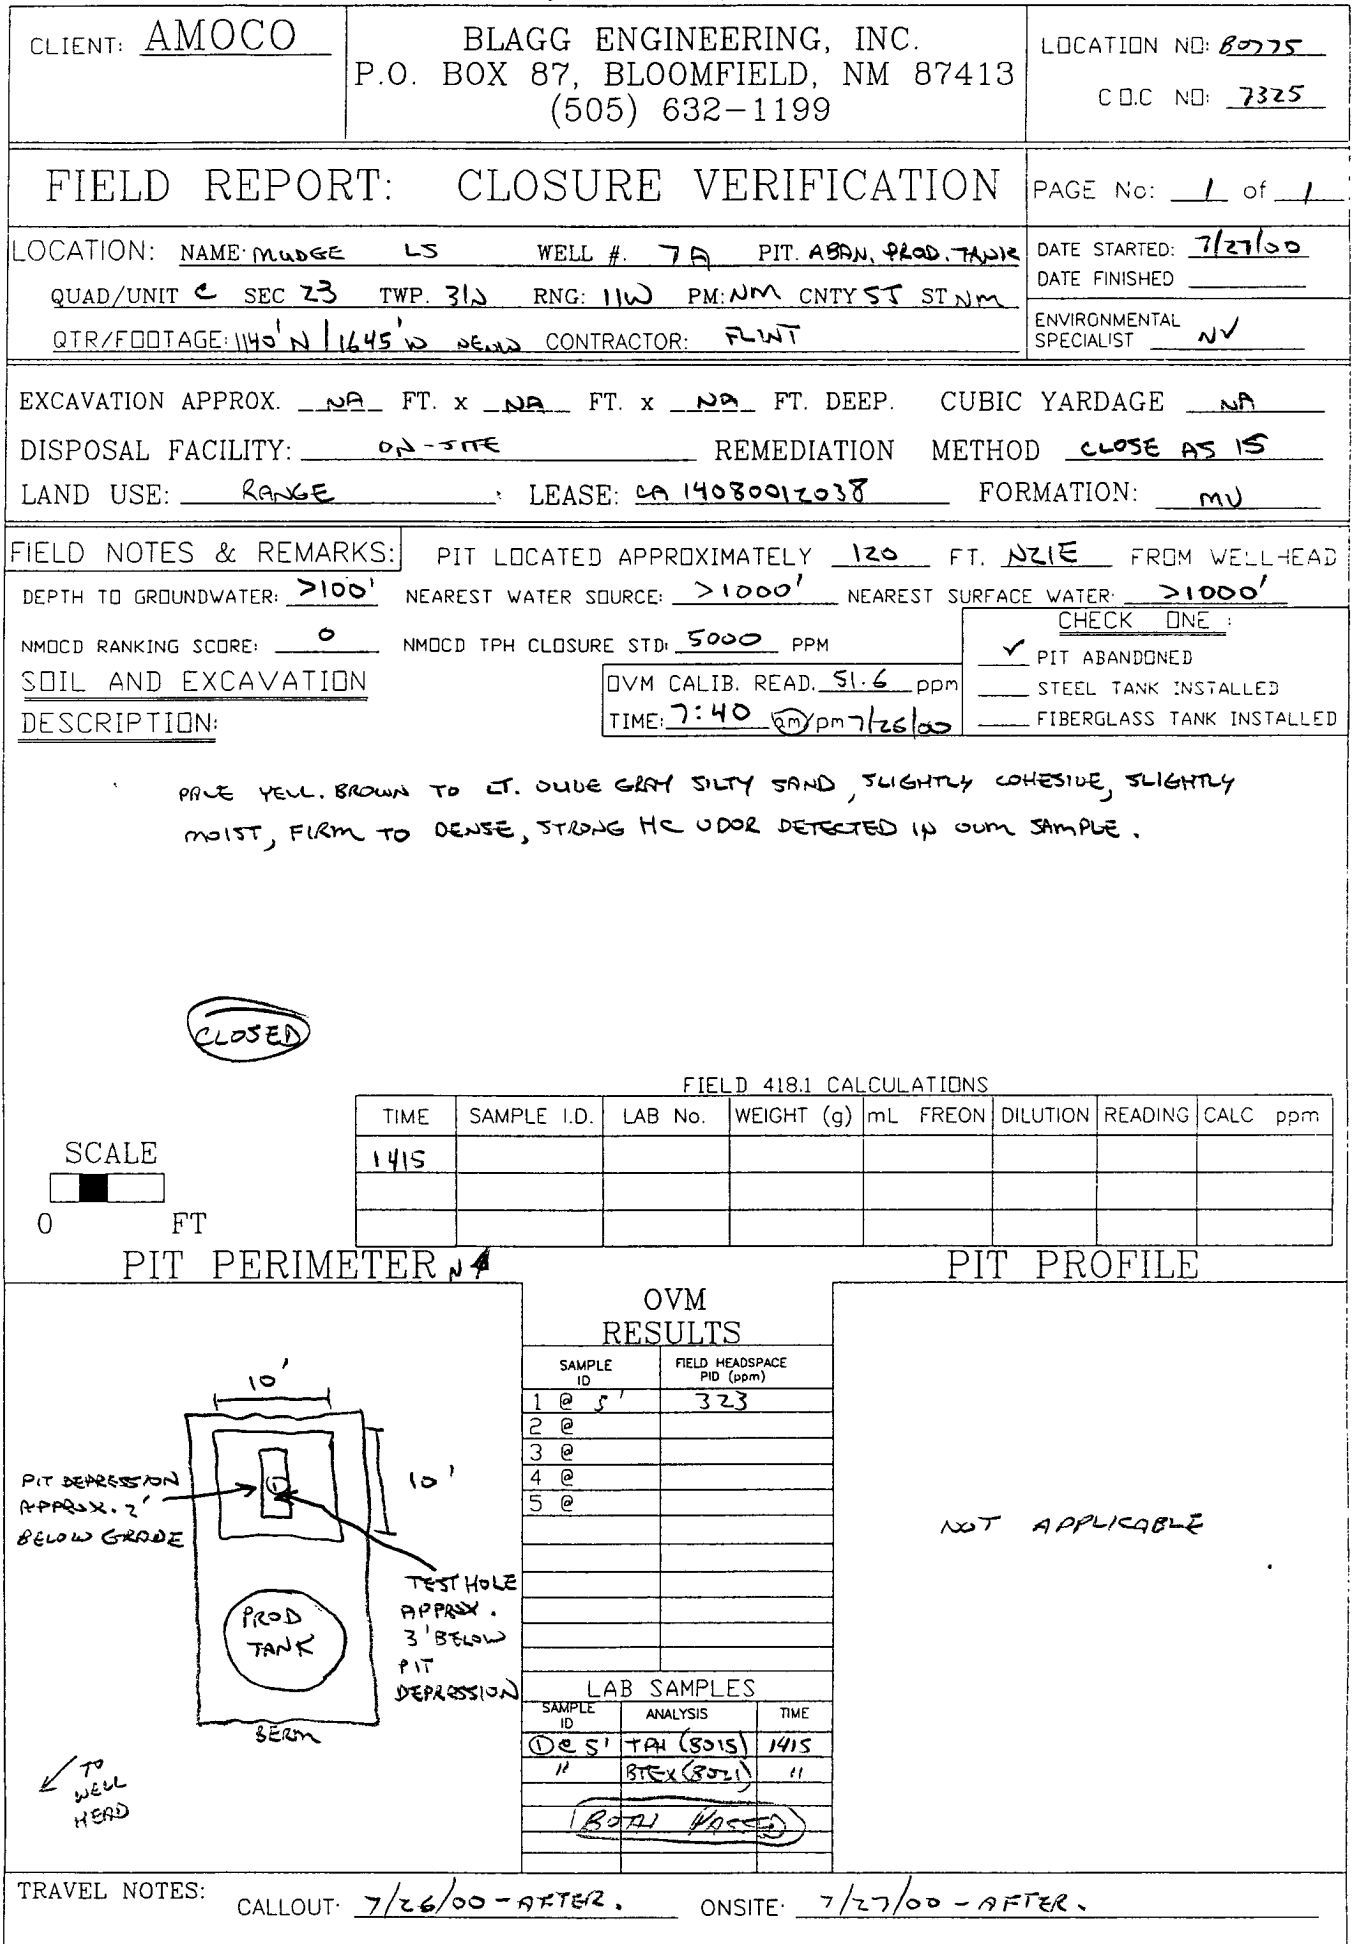 CLIENT: AMOCO
BLAGG ENGINEERING, INC.
P.O. BOX 87, BLOOMFIELD, NM 87413
(505) 632-1199
LOCATION NO: B0775
C.O.C NO: 7325
FIELD REPORT: CLOSURE VERIFICATION
PAGE No: 1 of 1
LOCATION: NAME: MUDGE LS WELL #: 7A PIT: ABAN. PROD. TANK
QUAD/UNIT C SEC 23 TWP. 31N RNG: 11W PM: NM CNTY SJ ST NM
QTR/FOOTAGE: 1140'N / 1645'W NE/NW CONTRACTOR: FLINT
DATE STARTED: 7/27/00
DATE FINISHED
ENVIRONMENTAL
SPECIALIST NV
EXCAVATION APPROX. NA FT. x NA FT. x NA FT. DEEP. CUBIC YARDAGE NA
DISPOSAL FACILITY: ON-SITE REMEDIATION METHOD CLOSE AS IS
LAND USE: RANGE LEASE: CA 14080012038 FORMATION: MV
FIELD NOTES & REMARKS: PIT LOCATED APPROXIMATELY 120 FT. N21E FROM WELLHEAD
DEPTH TO GROUNDWATER: >100' NEAREST WATER SOURCE: >1000' NEAREST SURFACE WATER: >1000'
NMOCD RANKING SCORE: 0 NMOCD TPH CLOSURE STD: 5000 PPM
CHECK ONE :
✓ PIT ABANDONED
STEEL TANK INSTALLED
FIBERGLASS TANK INSTALLED
SOIL AND EXCAVATION
DESCRIPTION:
OVM CALIB. READ. 51.6 ppm
TIME: 7:40 am/pm 7/26/00
PALE YELL. BROWN TO LT. OLIVE GRAY SILTY SAND, SLIGHTLY COHESIVE, SLIGHTLY
MOIST, FIRM TO DENSE, STRONG HC ODOR DETECTED IN OVM SAMPLE.
CLOSED
FIELD 418.1 CALCULATIONS
TIME SAMPLE I.D. LAB No. WEIGHT (g) mL FREON DILUTION READING CALC ppm
1415
SCALE
0 FT
PIT PERIMETER N
PIT PROFILE
OVM
RESULTS
SAMPLE ID FIELD HEADSPACE PID (ppm)
1 @ 5' 323
2 @
3 @
4 @
5 @
10'
10'
PIT DEPRESSION
APPROX. 2'
BELOW GRADE
TEST HOLE
APPROX.
3' BELOW
PIT
DEPRESSION
1
PROD
TANK
BERM
TO
WELL
HEAD
NOT APPLICABLE
LAB SAMPLES
SAMPLE ID ANALYSIS TIME
①@5' TPH (8015) 1415
" BTEX (8021) "
BOTH PASSED
TRAVEL NOTES: CALLOUT: 7/26/00 - AFTER. ONSITE: 7/27/00 - AFTER.